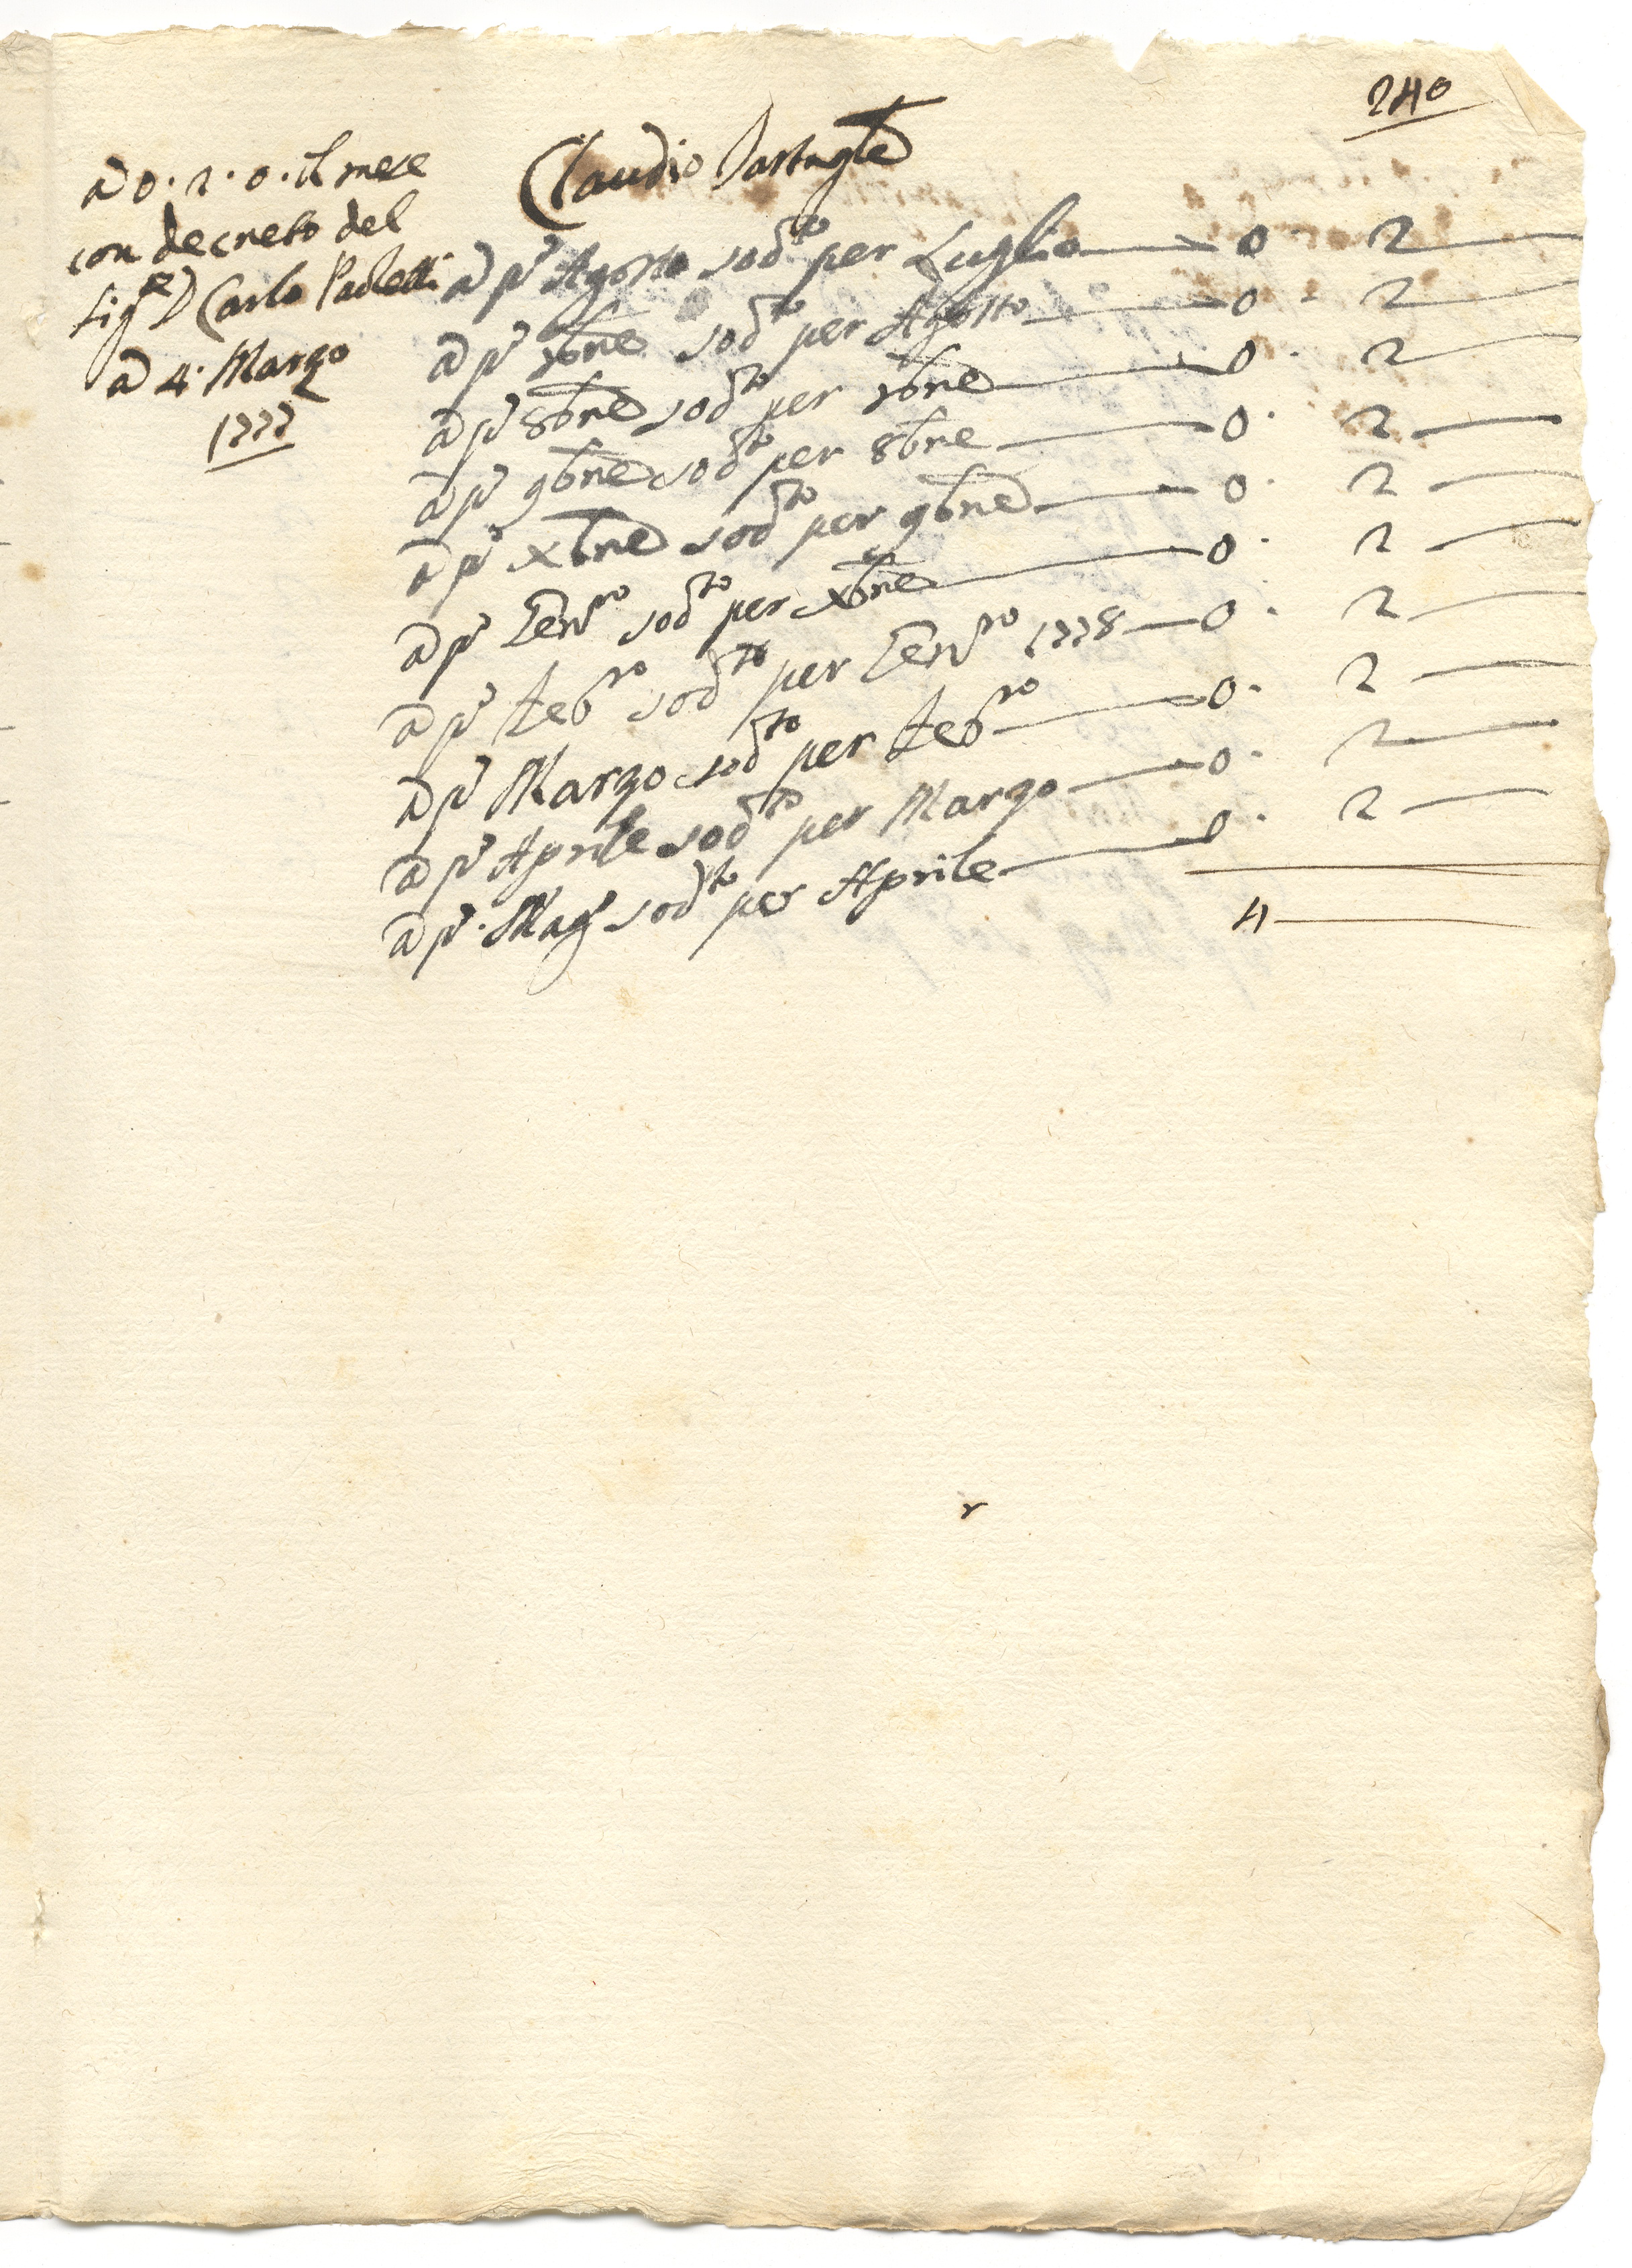 240
Claudio Partugle
a 0. 2. 0. il mese
con decreto del
Sigr D Carlo Paoletti
a 4. Marzo
1777
a pº Agosto sodto per Luglio — 0. 2 —
a pº 7bre sodto per Agosto — 0. 2 —
a pº 8bre sodto per 7bre — 0. 2 —
a pº 9bre sodto per 8bre — 0. 2 —
a pº xbre sodto per 9bre — 0. 2 —
a pº Genro sodto per xbre — 0. 2 —
a pº Febro sodto per Genro 1778 — 0. 2 —
a pº Marzo sodto per Febro — 0. 2 —
a pº Aprile sodto per Marzo — 0. 2 —
a pº Magº sodto per Aprile — 0. 2 —
4 —